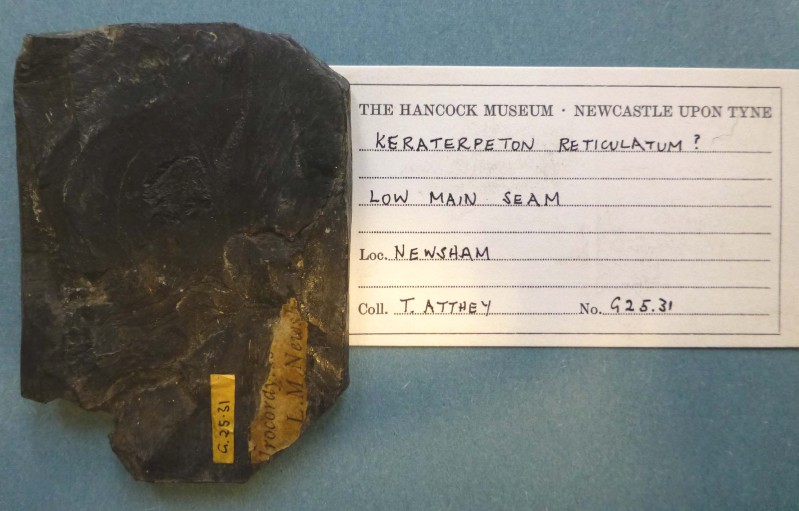 THE HANCOCK MUSEUM · NEWCASTLE UPON TYNE
KERATERPETON RETICULATUM?
LOW MAIN SEAM
Loc. NEWSHAM
Coll. T. ATTHEY No. G25.31
G.25.31
L.M.